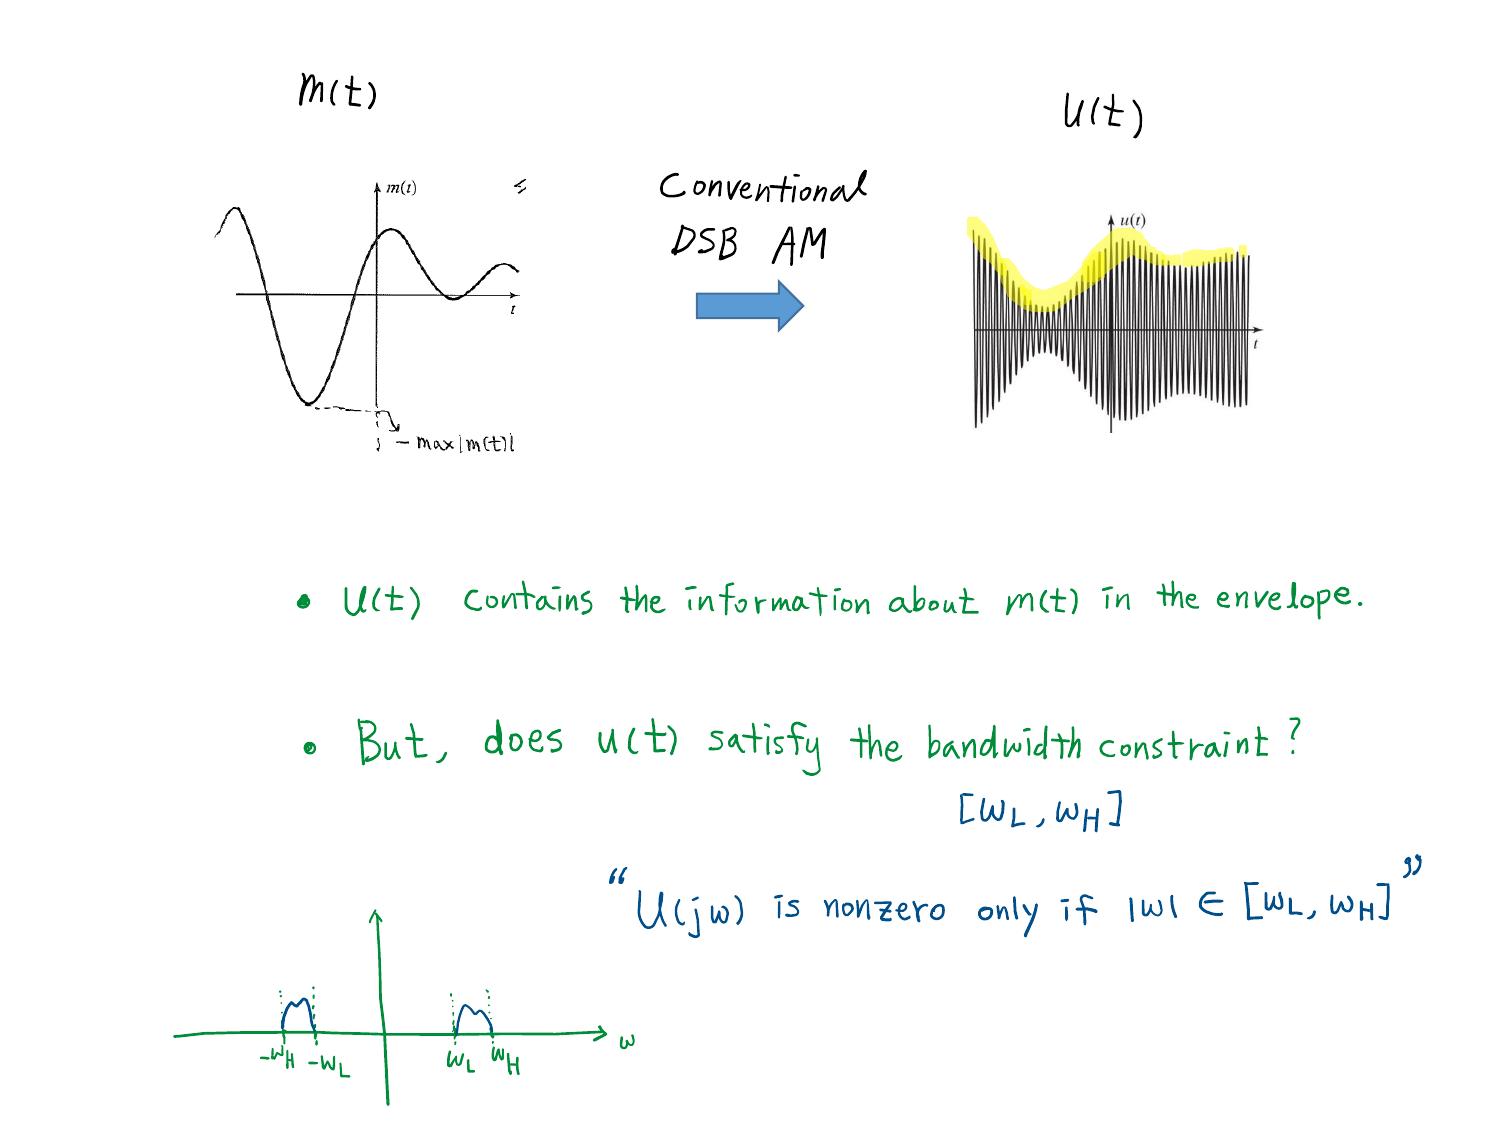 m(t)
u(t)
Conventional
DSB AM
m(t)
t
- max|m(t)|
u(t)
t
• u(t) contains the information about m(t) in the envelope.
• But, does u(t) satisfy the bandwidth constraint?
[ω_L, ω_H]
“U(jω) is nonzero only if |ω| ∈ [ω_L, ω_H]”
-ω_H -ω_L ω_L ω_H ω